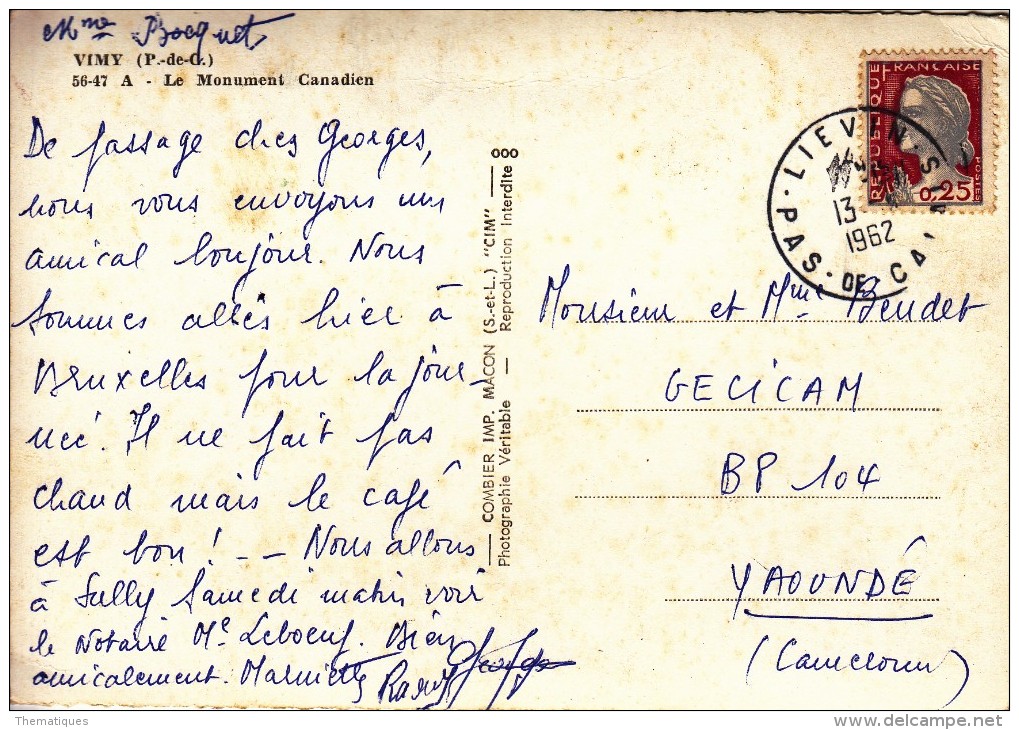 Mme Bocquet
VIMY (P.-de-C.)
56-47 A - Le Monument Canadien
De passage chez Georges,
nous vous envoyons un
amical bonjour. Nous
sommes allés hier à
Bruxelles pour la jour-
née. Il ne fait pas
chaud mais le café
est bon ! -- Nous allons
à Sully Samedi matin voir
le Notaire Me Leboeuf. Bien
amicalement.
Georges
COMBIER IMP. MACON (S.-et-L.) "CIM"
Photographie Véritable — Reproduction Interdite
REPUBLIQUE
FRANCAISE
POSTES
0,25
LIEVIN
PAS-DE-CALAIS
13
1962
Monsieur et Mme Beudet
GECICAM
BP 104
YAOUNDÉ
(Cameroun)
Thematiques
www.delcampe.net